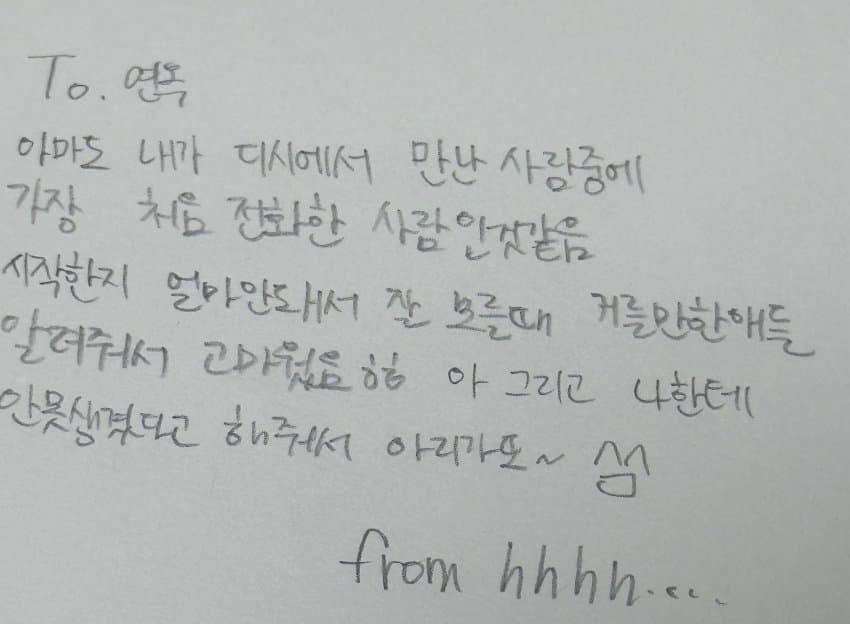 To. 연옥
아마도 내가 디시에서 만난 사람중에
가장 처음 전화한 사람인것같음
시작한지 얼마안돼서 잘 모를때 거를만한애들
알려줘서 고마웠음 ㅎㅎ 아 그리고 나한테
안못생겼다고 해줘서 아리가또~ 섬
from hhhh.....